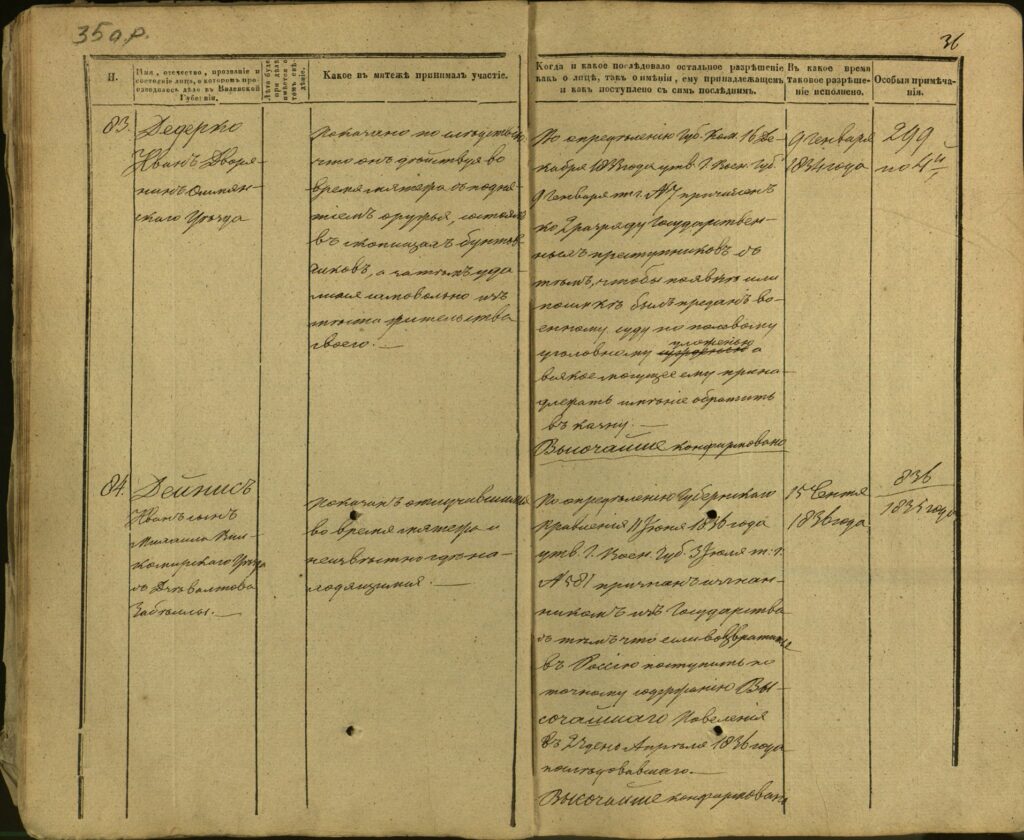 35 о.р.
36
И.
Имя, отечество, прозваніе и
состояніе лица, о которомъ про-
изводилось дѣло въ Виленской
Губерніи.
Какое въ мятежѣ принималъ участіе.
Когда и какое послѣдовало остальное разрѣшеніе
какъ о лицѣ, такъ о имѣніи, ему принадлежащемъ
и какъ поступлено съ симъ послѣднимъ.
Въ какое время
таковое разрѣше-
ніе исполнено.
Особыя примѣча-
нія.
83.
Дедерко
Иванъ Дворя-
нинъ Ошмян-
скаго Уѣзда
Показано по слѣдствію
что онъ дѣйствуя во
время мятежа съ подня-
тіемъ оружья, состоялъ
въ скопищахъ бунтов-
щиковъ, а затѣмъ уда-
лился самовольно изъ
мѣста жительства
своего.
По опредѣленію Губ. Ком. 16 Де-
кабря 1833 года утв. Г. Воен. Губ.
9 Генваря т. г. № 7 причисленъ
ко 2 разряду Государствен-
ныхъ преступниковъ съ
тѣмъ, чтобы по явкѣ или
поимкѣ былъ преданъ во-
енному суду по полевому
уголовному уложенію а
всякое могущее ему прина-
длежать имѣніе обратить
въ казну.
Высочайше конфирмовано
9 Генваря
1834 года
299
по 4й
84.
Дейнисъ
Иванъ сынъ
Михаила Вил-
комирскаго Уѣзда
Показанъ отлучившимся
во время мятежа и
неизвѣстно гдѣ на-
ходящимся.
По опредѣленію Губернскаго
Правленія 11 Іюня 1836 года
утв. Г. Воен. Губ. 3 Іюля т. г.
№ 581 признанъ изгнан-
никомъ изъ Государства
съ тѣмъ что если возвратится
въ Россію поступить по
точному содержанію Вы-
сочайшаго Повеленія
въ 24 день Апрѣля 1836 года
послѣдовавшаго.
Высочайше конфирмовано
15 Сентя
1836 года
836
1835 года